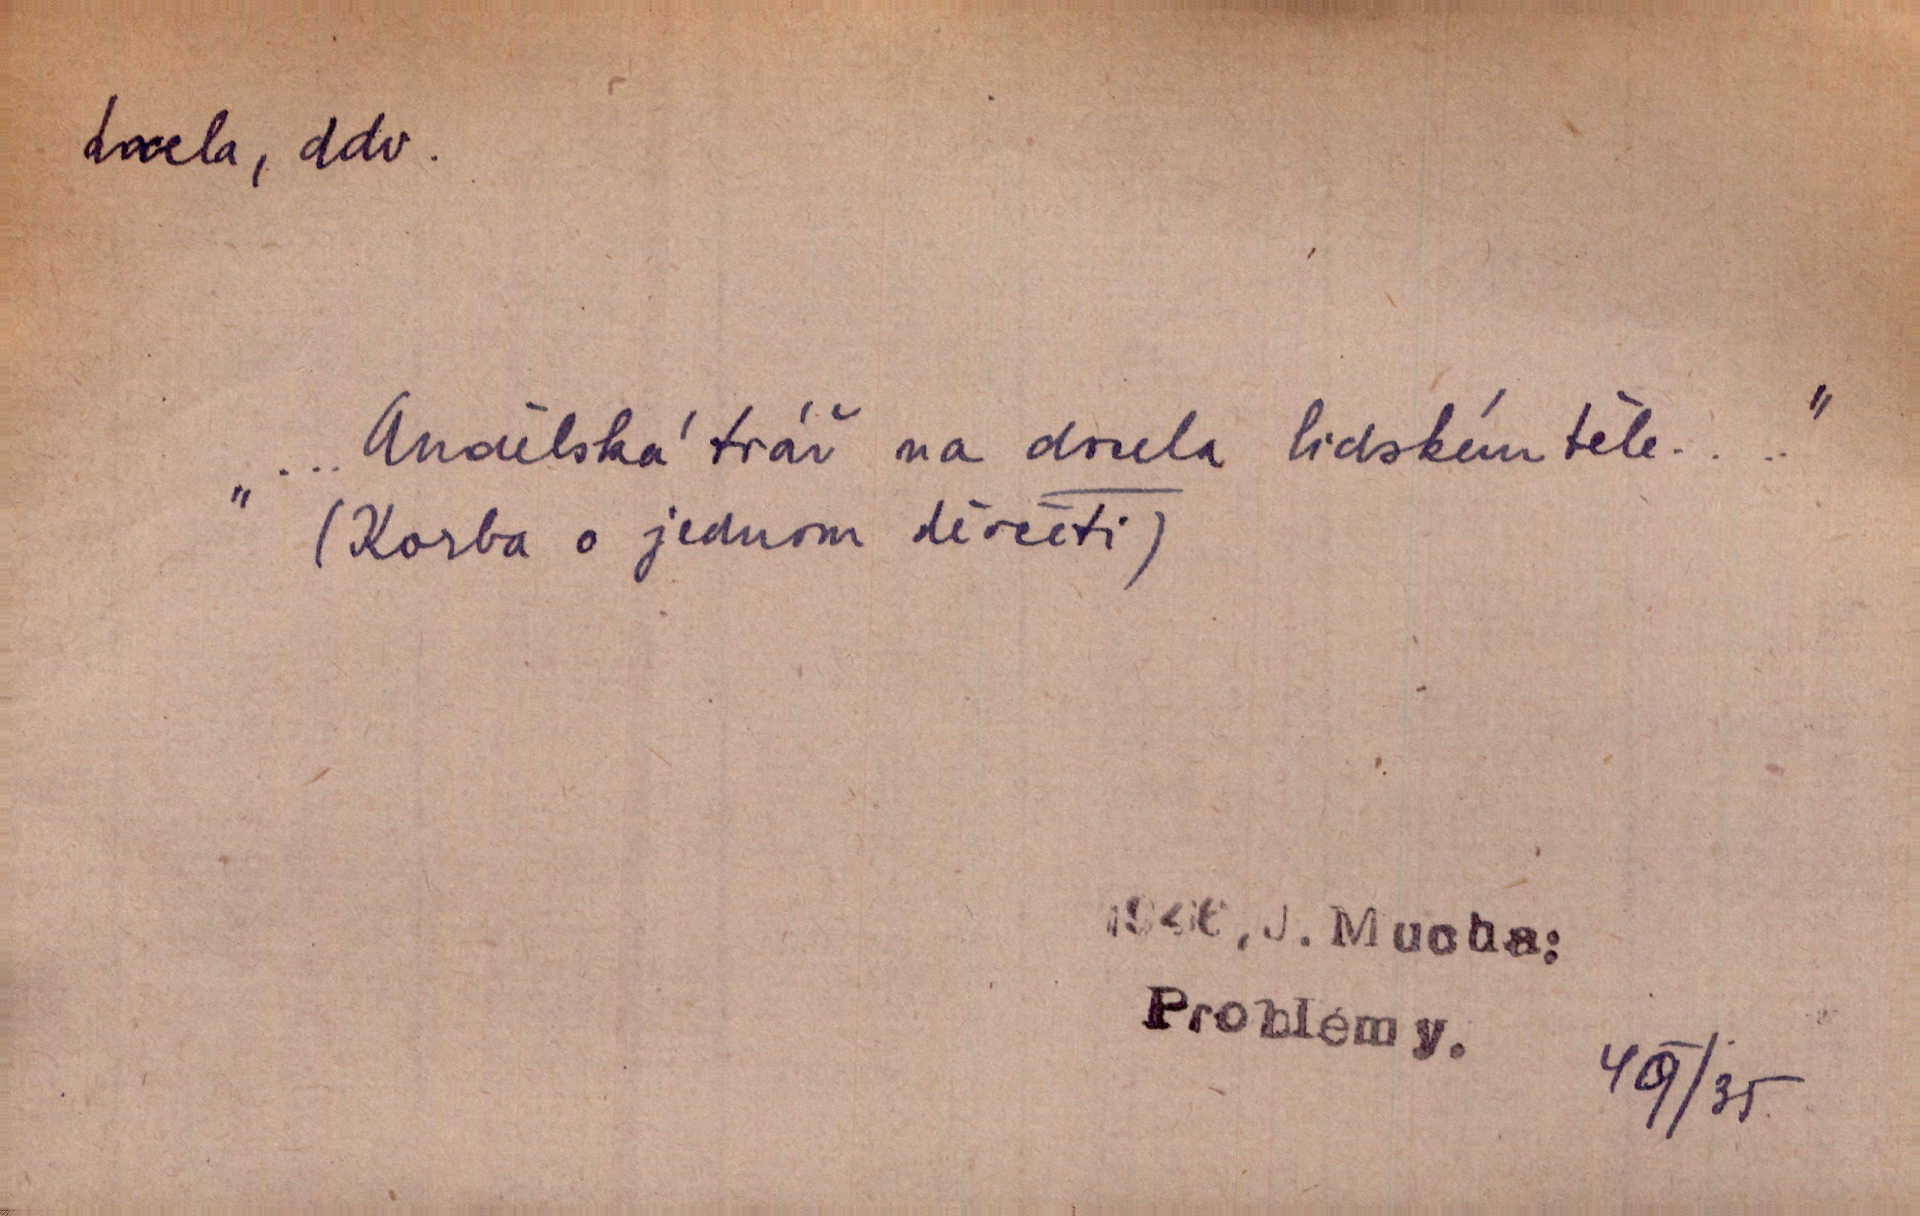 docela, adv.
"... Andělská tvář na docela lidském těle...."
(Kresba o jednom děvčeti)
1946, J. Mucha:
Problemy.
49/35